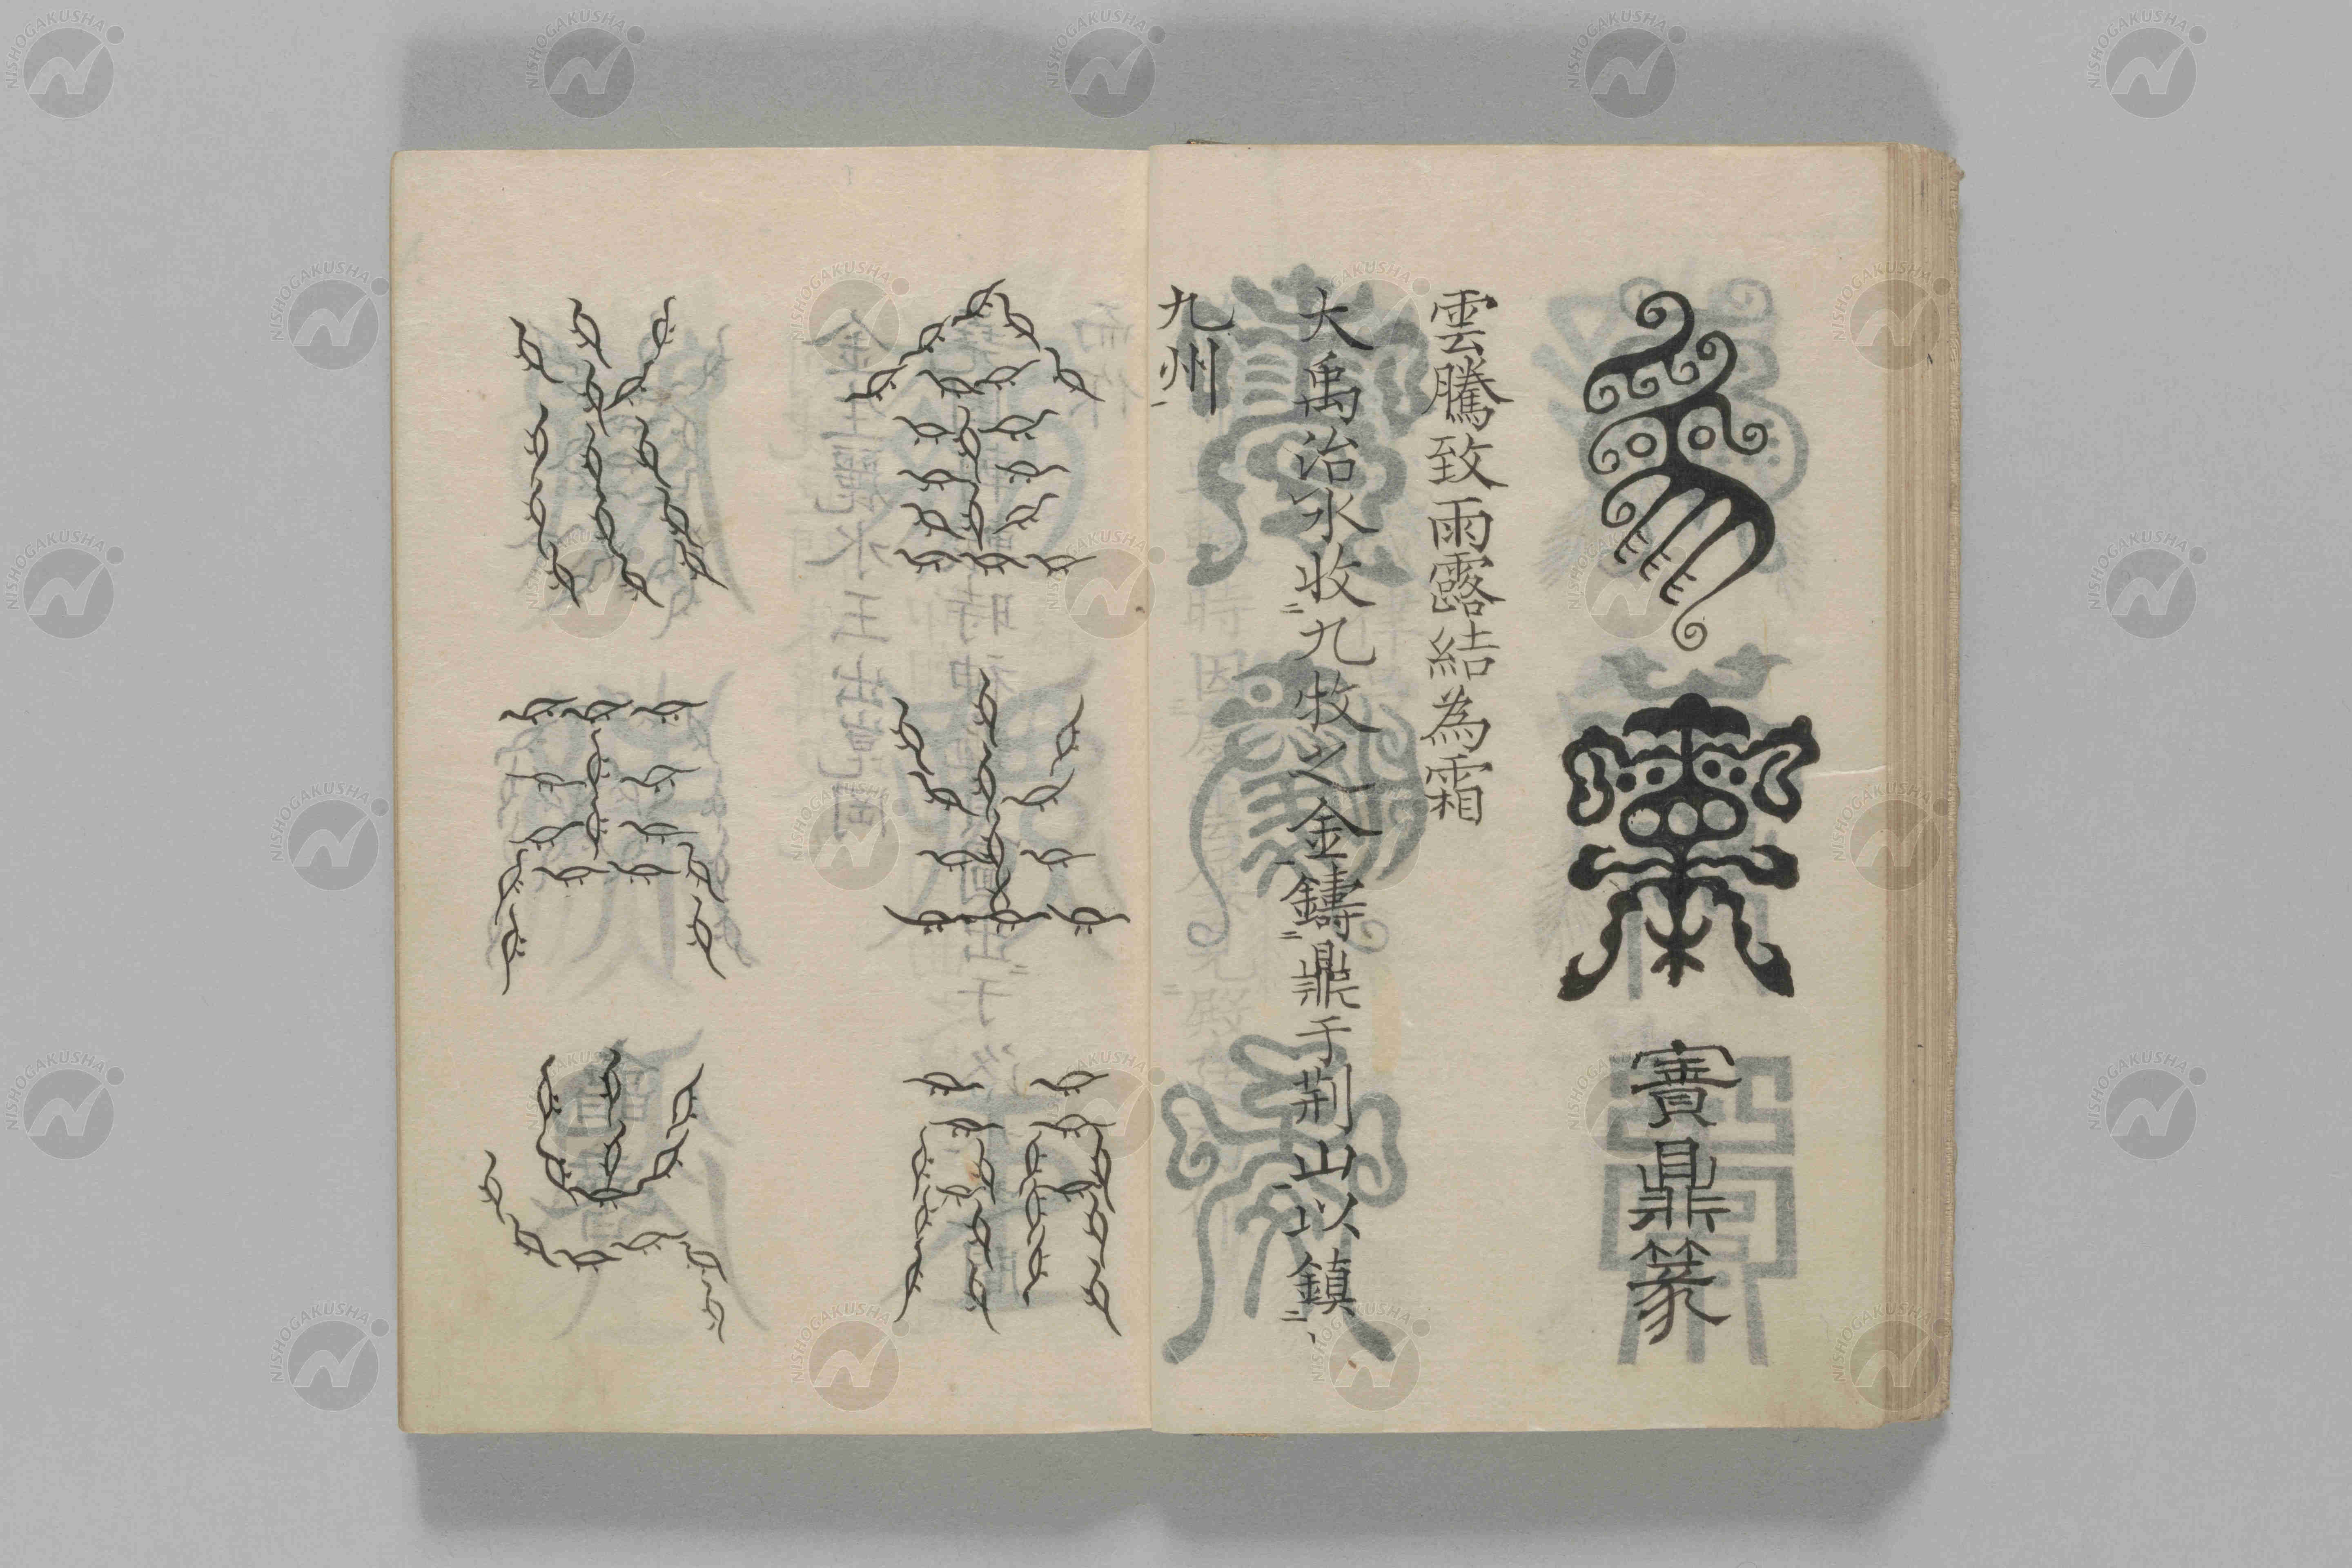 為霜寶鼎篆
雲騰致雨露結為霜
大禹治水收九牧之金鑄鼎于荊山以鎮
九州
金生麗
NISHOGAKUSHA